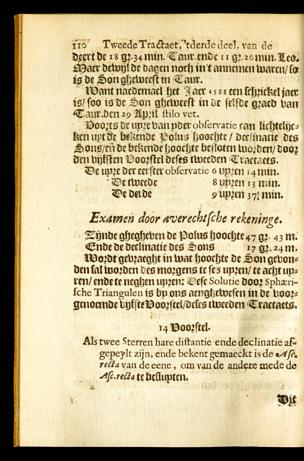 110 Tweede Tractaet, 'tderde deel, van de
deert de 18 gr. 34 min. Taur. ende 11 gr. 20 min. Leo.
Maer dewijl de dagen noch in't annemen waren/ so
is de Son gheweest in Taur.
Want naedemael het Jaer 1588 een schrickel jaer
is/ soo is de Son gheweest in de selfde graed van
Taur. den 29 April stilo vet.
Voorts de upre van yder observatie can lichtelije-
ken uyt de bekende Polus hoochte/ declinatie des
Sons/ en de bekende hoochte besloten worden/ door
den vijfften Voorstel deses tweeden Tractaets.
De upre der eerster observatie 6 upren 14 min.
De tweede 8 upren 13 min.
De derde 9 upren 37½ min.
Examen door averechtsche rekeninge.
Zijnde ghegheven de Polus hoochte 47 gr. 43 m.
Ende de declinatie des Sons 17 gr. 24 m.
Wordt gevraeght in wat hoochte de Son gevon-
den sal worden des morgens te ses upren/ te acht up-
ren/ ende te neghen upren: Dese Solutie door Sphæri-
sche Triangulen is by ons aengewesen in de voor-
genoemde vijfste Voorstel/ deses tweeden Tractaets.
14 Voorstel.
Als twee Sterren hare distantie ende declinatie af-
gepeylt zijn, ende bekent gemaeckt is de Asc.
recta van de eene, om van de andere mede de
Asc. recta te besluyten.
Dit